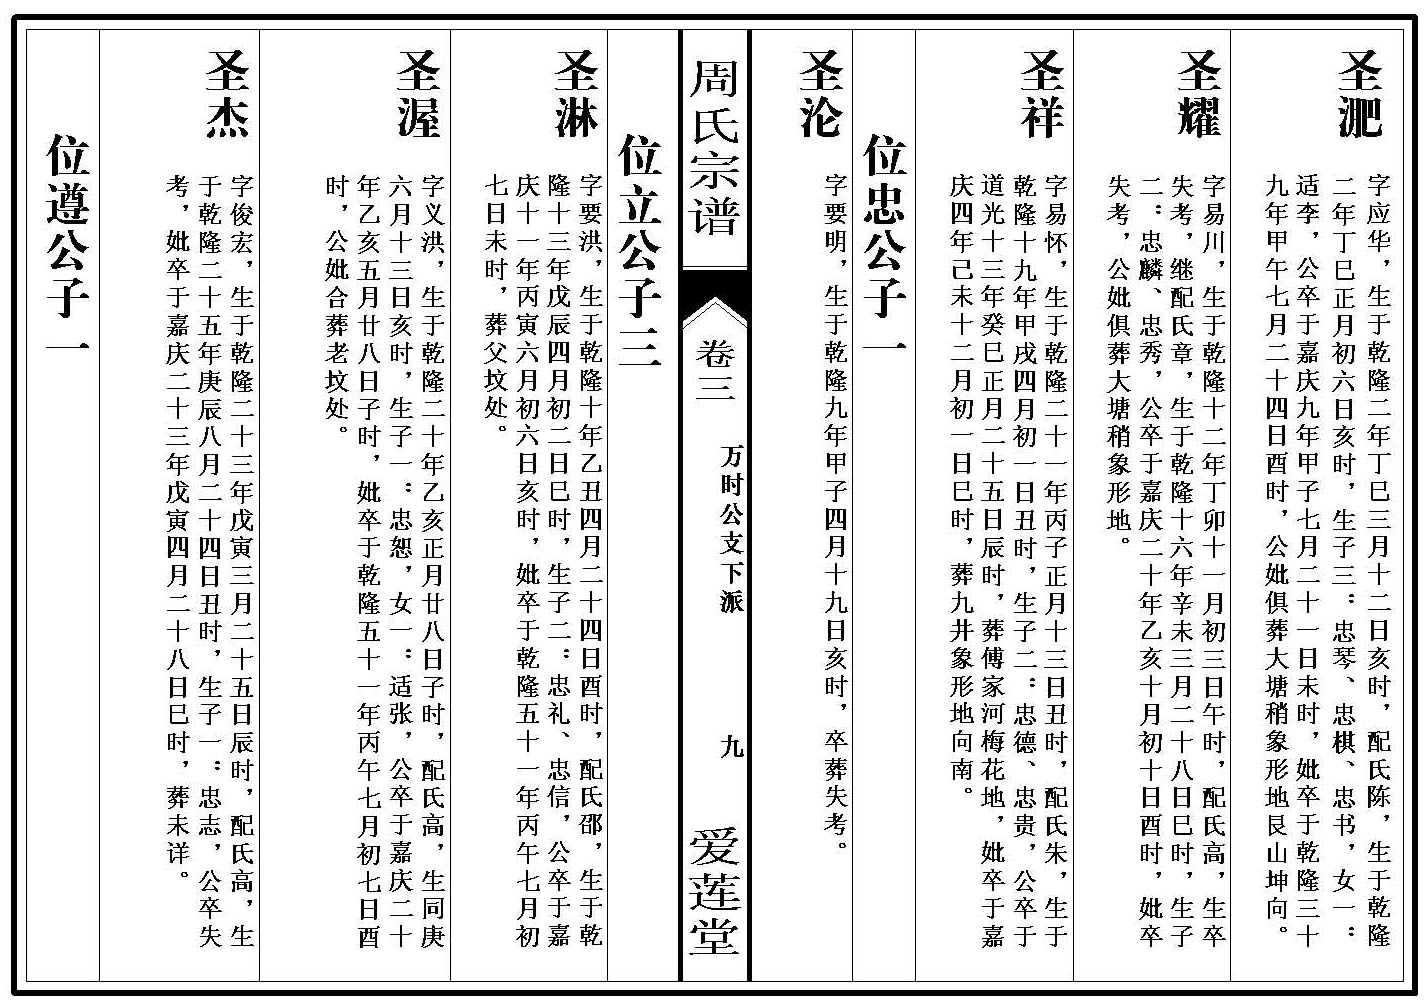 圣淝
字应华，生于乾隆二年丁巳三月十二日亥时，配氏陈，生于乾隆
二年丁巳正月初六日亥时，生子三：忠琴、忠棋、忠书，女一：
适李，公卒于嘉庆九年甲子七月二十一日未时，妣卒于乾隆三十
九年甲午七月二十四日酉时，公妣俱葬大塘稍象形地艮山坤向。
圣耀
字易川，生于乾隆十二年丁卯十一月初三日午时，配氏高，生卒
失考，继配氏章，生于乾隆十六年辛未三月二十八日巳时，生子
二：忠麟、忠秀，公卒于嘉庆二十年乙亥十月初十日酉时，妣卒
失考，公妣俱葬大塘稍象形地。
圣祥
字易怀，生于乾隆二十一年丙子正月十三日丑时，配氏朱，生于
乾隆十九年甲戌四月初一日丑时，生子二：忠德、忠贵，公卒于
道光十三年癸巳正月二十五日辰时，葬傅家河梅花地，妣卒于嘉
庆四年己未十二月初一日巳时，葬九井象形地向南。
位忠公子一
圣沦
字要明，生于乾隆九年甲子四月十九日亥时，卒葬失考。
周氏宗谱
卷三
万时公支下派
九
爱莲堂
位立公子三
圣淋
字要洪，生于乾隆十年乙丑四月二十四日酉时，配氏邵，生于乾
隆十三年戊辰四月初二日巳时，生子二：忠礼、忠信，公卒于嘉
庆十一年丙寅六月初六日亥时，妣卒于乾隆五十一年丙午七月初
七日未时，葬父坟处。
圣渥
字义洪，生于乾隆二十年乙亥正月廿八日子时，配氏高，生同庚
六月十三日亥时，生子一：忠恕，女一：适张，公卒于嘉庆二十
年乙亥五月廿八日子时，妣卒于乾隆五十一年丙午七月初七日酉
时，公妣合葬老坟处。
圣杰
字俊宏，生于乾隆二十三年戊寅三月二十五日辰时，配氏高，生
于乾隆二十五年庚辰八月二十四日丑时，生子一：忠志，公卒失
考，妣卒于嘉庆二十三年戊寅四月二十八日巳时，葬未详。
位遵公子一